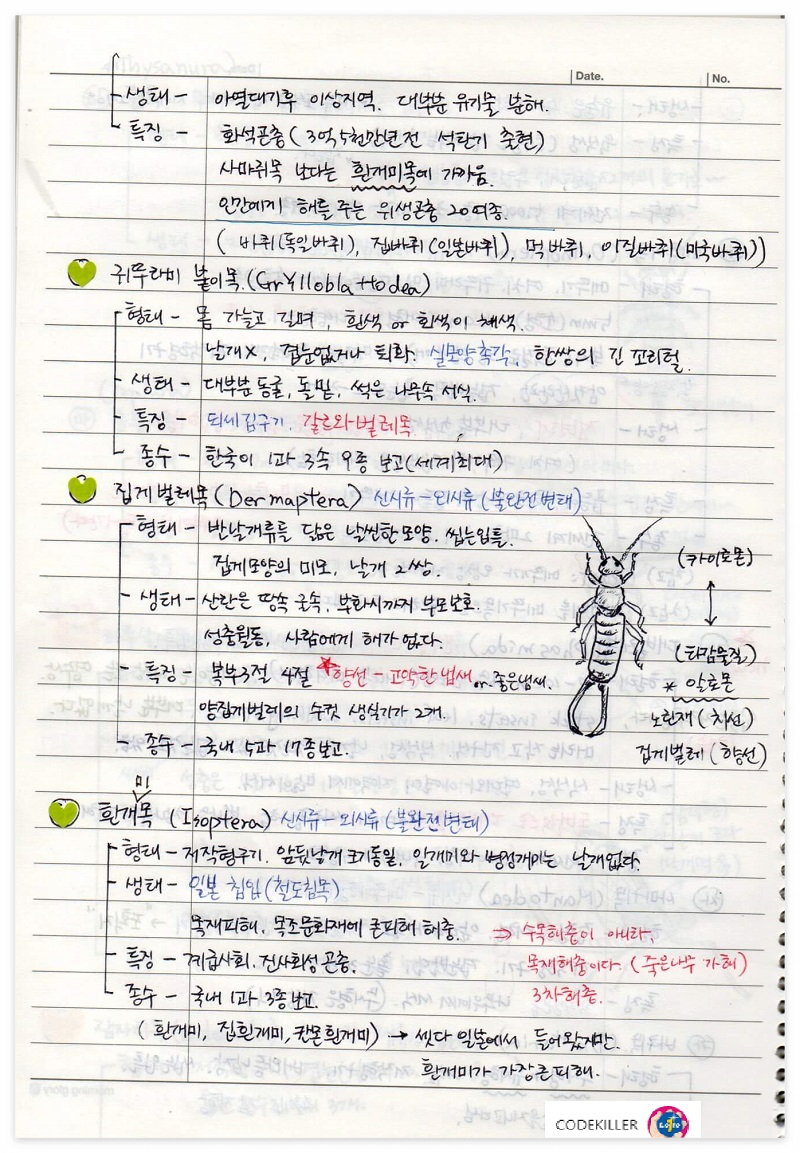 Date.
No.
생태 - 아열대기후 이상지역, 대부분 유기물 분해.
특징 - 화석곤충 (3억 5천만년전 석탄기 출현)
사마귀목 보다는 흰개미목에 가까움.
인간에게 해를 주는 위생곤충 20여종.
(바퀴(독일바퀴), 집바퀴(일본바퀴), 먹바퀴, 이질바퀴(미국바퀴))
귀뚜라미 붙이목.(Grylloblattodea)
형태 - 몸 가늘고 길며, 흰색 or 회색이 채색.
날개X, 겹눈없거나 퇴화. 실모양촉각, 한쌍의 긴 꼬리털.
생태 - 대부분 동굴, 돌밑, 썩은 나무속 서식.
특징 - 되새김구기. 갈르와벌레목.
종수 - 한국이 1과 3속 9종 보고(세계최대)
집게벌레목 (Dermaptera) 신시류-외시류 (불완전변태)
형태 - 반날개류들 닮은 날씬한모양. 씹는입틀.
집게모양의 미모, 날개 2쌍.
(카이로몬)
생태 - 산란은 땅속 군속, 부화시까지 부모보호.
성충월동, 사람에게 해가 없다.
(타감물질)
특징 - 복부3절 4절 *향선 - 고약한냄새 or 좋은냄새.
* 알로몬
양집게벌레의 수컷 생식기가 2개.
노린재 (취선)
종수 - 국내 5과 17종보고.
집게벌레 (향선)
흰개미목 (Isoptera) 신시류-외시류 (불완전변태)
형태 - 저작형구기. 앞뒷날개 크기동일, 일개미와 병정개미는 날개없다.
생태 - 일본 침입(철도침목)
목재피해. 목조문화재에 큰피해 해충. ⇒ 수목해충이 아니라,
특징 - 계급사회. 진사회성 곤충. 목재해충이다. (죽은나무 가해)
종수 - 국내 1과 3종보고. 3차해충.
(흰개미, 집흰개미, 칸몬흰개미) → 셋다 일본에서 들어왔지만
흰개미가 가장큰피해.
morning glory
CODEKILLER
LOTTO